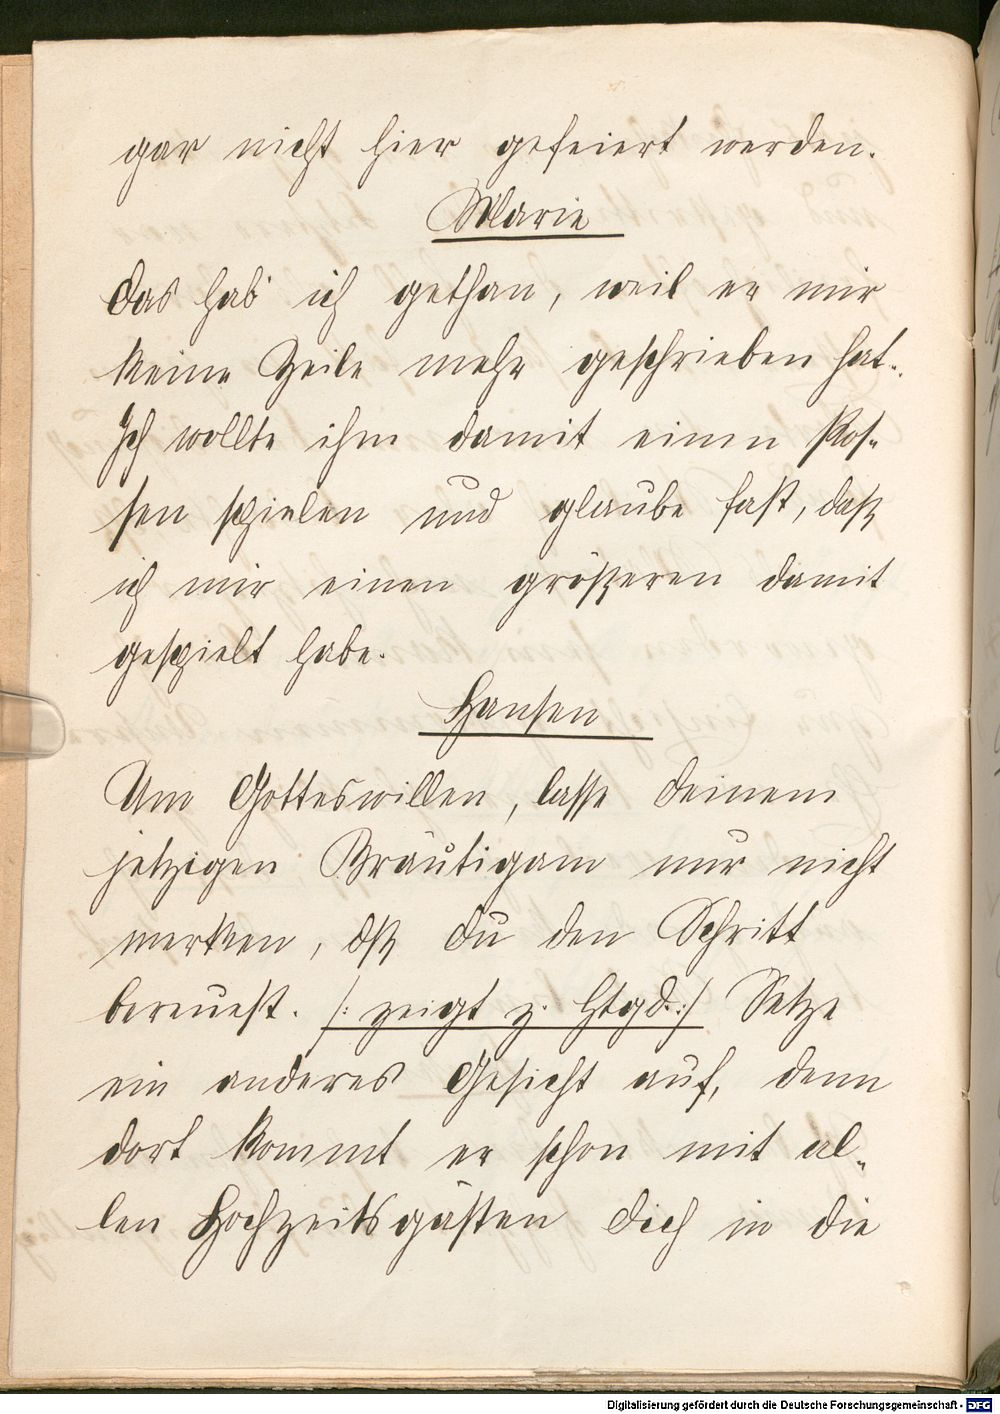 gar nicht hier gefeiert werden.
Marie
Das hab' ich gethan, weil er mir
keine Zeile mehr geschrieben hat.
Ich wollte ihm damit einen Pos-
sen spielen und glaube fast, daß
ich mir einen größeren damit
gespielt habe.
Hansen
Um Gotteswillen, lasse deinem
jetzigen Bräutigam nur nicht
merken, dß du den Schritt
bereuest. /: zeigt z. Htgd. :/ Setze
ein anderes Gesicht auf, denn
dort kommt er schon mit al-
len Hochzeitsgästen dich in die
Digitalisierung gefördert durch die Deutsche Forschungsgemeinschaft - DFG